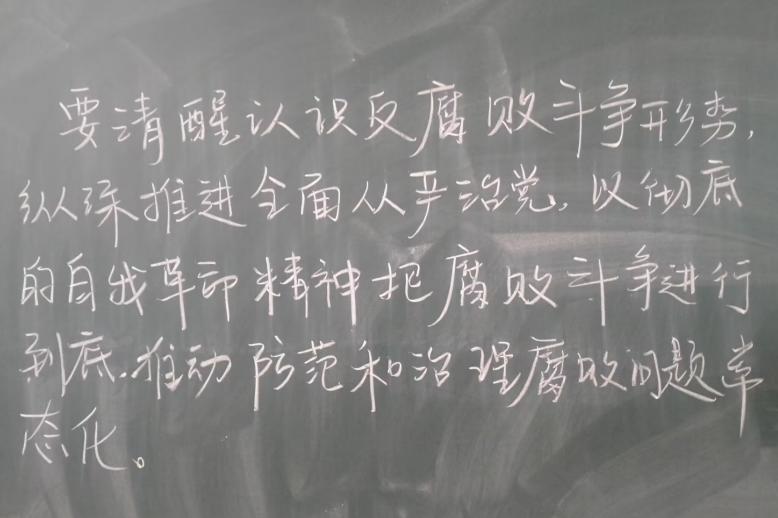 要清醒认识反腐败斗争形势,
纵深推进全面从严治党,以彻底
的自我革命精神把腐败斗争进行
到底,推动防范和治理腐败问题常
态化。